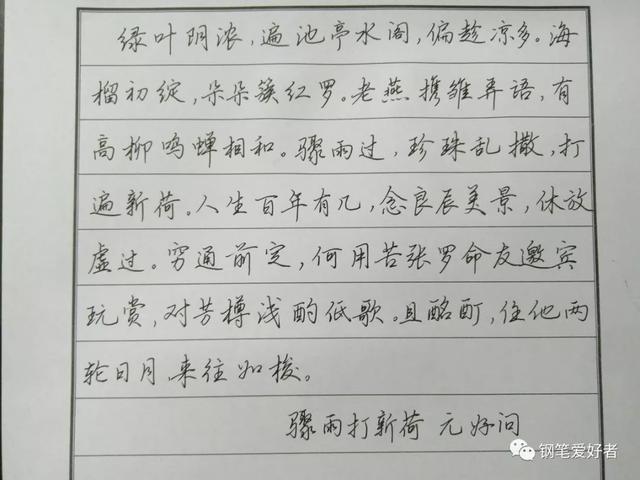 绿叶阴浓，遍池亭水阁，偏趁凉多。海
榴初绽，朵朵簇红罗。老燕携雏弄语，有
高柳鸣蝉相和。骤雨过，珍珠乱撒，打
遍新荷。人生百年有几，念良辰美景，休放
虚过。穷通前定，何用苦张罗命友邀宾
玩赏，对芳樽浅酌低歌。且酩酊，任他两
轮日月，来往如梭。
骤雨打新荷 元好问
钢笔爱好者